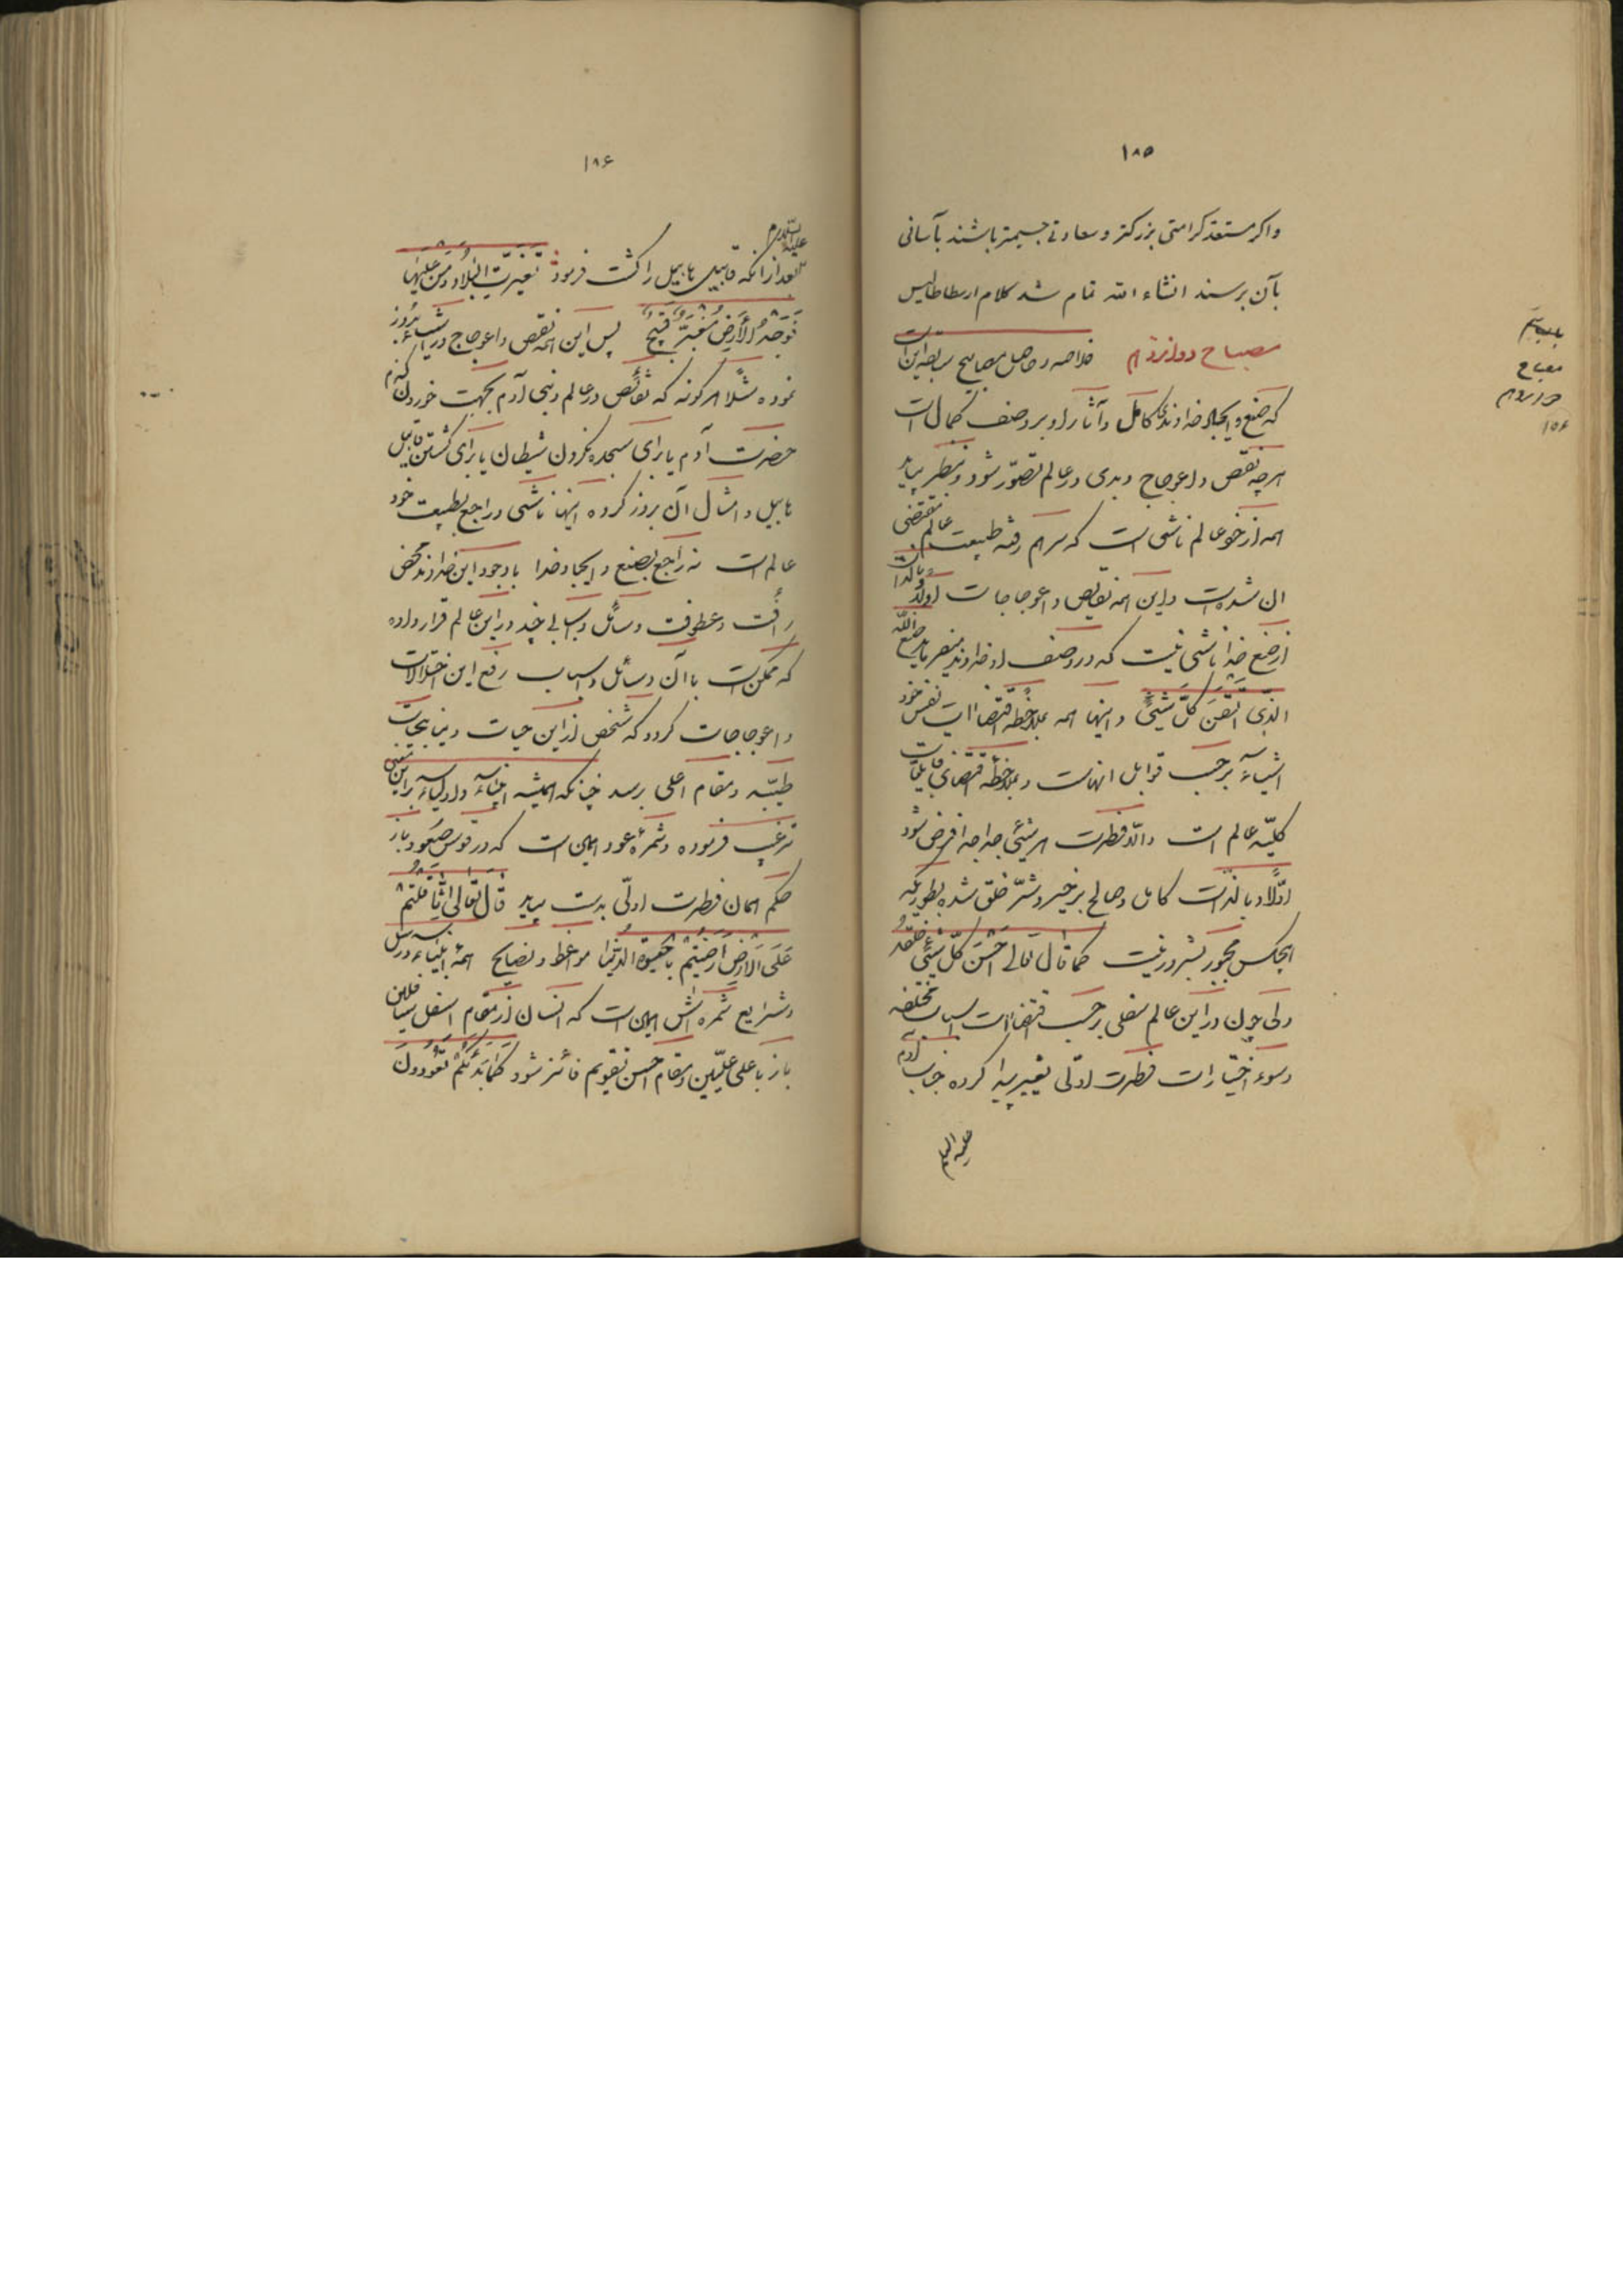 ۱۸۵
واکر مستعد کرامتی بزرکتر و سعادتی جسیمتر باشند بآسانی
بآن برسند انشاء الله تمام شد کلام ارسطاطالیس
مصباح دوازدهم خلاصه و حاصل مصابیح سابقه این است
که صنع و ایجاد خداوندی کامل و آثار او بر وصف کمال است
هرچه نقص و اعوجاج و بدی در عالم تصوّر شود و بنظر بیاید
همه از خود عالم ناشی است که سرهم رفته طبیعت عالم مقتضی
ان شده است و این همه نقایص و اعوجاجات اولا و بالذات
از صنع خدا ناشی نیست که در وصف او خداوند میفرماید صنع الله
الذی اتقن کلّ شیئی و اینها همه بملاحظه اقتضاات نفس خود
اشیاء برحسب قوابل انهاست و بملاحظه اقتضای قابلیات
کلیّه عالم است والّا فطرت هر شیئی جدا جدا فرض شود
اوّلا و بالذات کامل و صالح بر خیر و شرّ خلق شده بطوریکه
هیچکس مجبور بشر ور نیست کما قال تعالی احسن کلّ شیئی خلقه
ولی چون در این عالم سفلی برحسب اقتضاات اسباب مختلفه
وسوء اختیارات فطرت اولی تغییر پیدا کرده جناب آدم
علیه السلام
بیستم
مصباح
دوازدهم
۱۸۶
علیه السلام
بعد از انکه قابیل هابیل را کشت فرمود تَغَیَّرَتِ البِلادُ وَمَن عَلَیها
فَوَجهُ الأَرضِ مُغبَرٌّ قَبیحٌ پس این همه نقص و اعوجاج در اشیاء بروز
نموده مثلا هر کونه که نقائص در عالم و بنی آدم بجهت خوردن کندم
حضرت آدم یا برای سجده نکردن شیطان یا برای کشتن قابیل
هابیل و امثال آن بروز کرده اینها ناشی و راجع بطبیعت خود
عالم است نه راجع بصنع و ایجاد خدا با وجود این خداوند محض
رأفت و عطوفت وسائل و اسبابی چند در این عالم قرار داده
که ممکن است با آن وسائل و اسباب رفع این اختلالات
و اعوجاجات کردد که شخص از این حیات دنیا بحیات
طیّبه و مقام اعلی برسد چنانکه همیشه انبیاء و اولیاء براین معنی
ترغیب فرموده و ثمره عود همین است که در قوس صعود باز
حکم همان فطرت اولی بدست بیاید قال تعالی اثّاقَلتُم
عَلَی الارضِ أرَضیتُم بِالحَیوةِ الدُّنیا مواعظ و نصایح همه انبیاء و رسل
و شرایع ثمره اش همین است که انسان از مقام اسفل سافلین
باز باعلی علیّین و مقام احسن تقویم فائز شود کَما بَدَئَکُم تَعُودُونَ